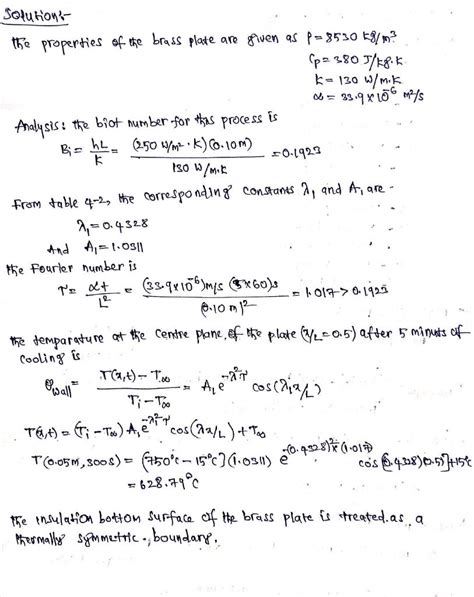 Solution:-
The properties of the brass plate are given as ρ = 8530 kg/m³
Cp = 380 J/kg.K
K = 130 W/m.K
α = 33.9 × 10⁻⁶ m²/s
Analysis: the biot number for this process is
Bi = hL/K = (250 W/m².K)(0.10m)/130 W/m.K = 0.1923
From table 4-2, the corresponding constants λ₁ and A₁ are -
λ₁ = 0.4328
And A₁ = 1.0311
the Fourier number is
τ = αt/L² = (33.9×10⁻⁶)m/s (5×60)s/(0.10 m)² = 1.017 > 0.1923
the temparature at the centre plane of the plate (x/L = 0.5) after 5 minuts of
cooling is
θwall = T(x,t) - T∞/Ti - T∞ = A₁e^-λ₁²τ cos(λ₁x/L)
T(x,t) = (Ti - T∞) A₁e^-λ₁²τ cos(λx/L) + T∞
T(0.05m, 300s) = (750°c - 15°c](1.0311) e^-(0.4328)²×(1.017) cos[(0.4328)(0.5)]+15°c
= 628.79°c
the insulation bottom surface of the brass plate is treated as a
thermally symmetric boundary.